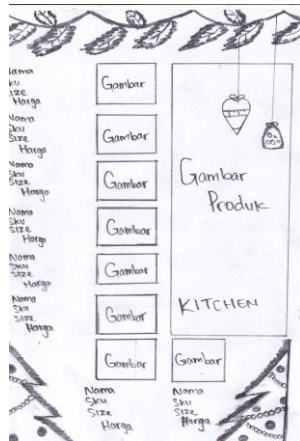 Nama
Sku
Size
Harga
Gambar
Nama
Sku
Size
Harga
Gambar
Nama
Sku
Size
Harga
Gambar
Nama
Sku
Size
Harga
Gambar
Nama
Sku
Size
Harga
Gambar
Nama
Sku
Size
Harga
Gambar
Gambar
Produk
KITCHEN
Gambar
Nama
Sku
Size
Harga
Gambar
Nama
Sku
Size
Harga